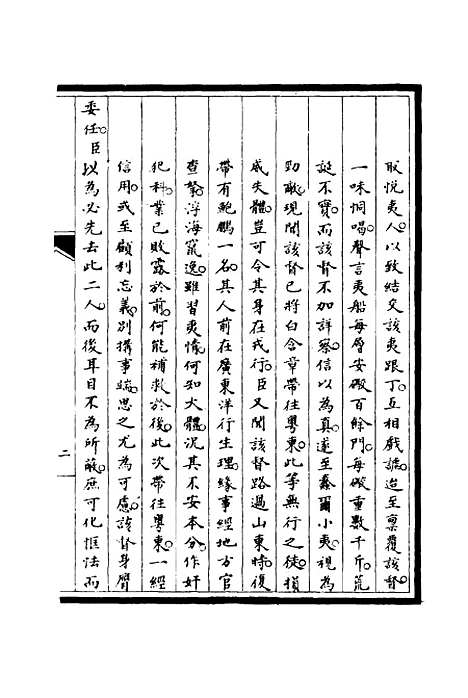 取悅夷人以致結交該夷跟丁互相戲謔迨至稟覆該督
一味恫喝聲言夷船每層安礮百餘門每礮重數千斤荒
誕不實而該督不加詳察信以為真遂至蕞爾小夷視為
勁敵現聞該督已將白含章帶往粵東此等無行之徒損
威失體豈可令其身在戎行臣又聞該督路過山東時復
帶有鮑鵬一名其人前在廣東洋行生理緣事經地方官
查拏浮海竄逸雖習夷情何知大體況其不安本分作奸
犯科業已敗露於前何能補救於後此次帶往粵東一經
信用或至顧利忘義別搆事端思之尤為可慮該督身膺
委任臣以為必先去此二人而後耳目不為所蔽庶可化恇怯而
二